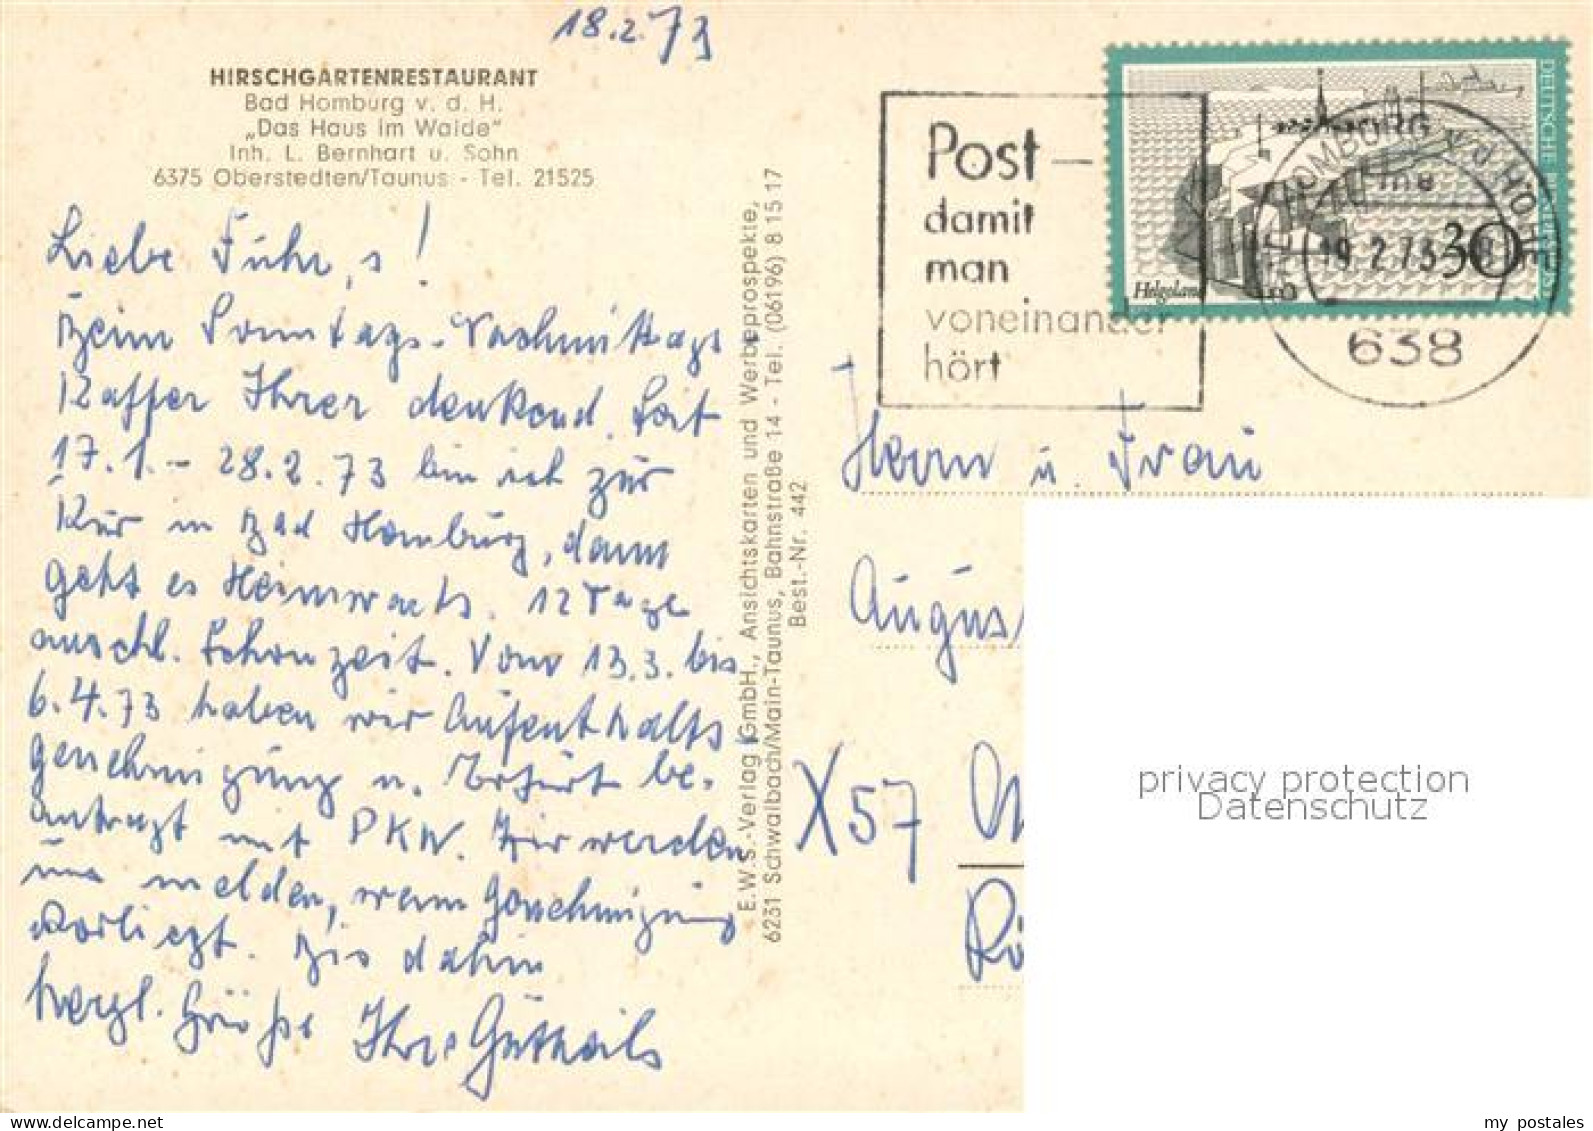 18.2.73
HIRSCHGARTENRESTAURANT
Bad Homburg v. d. H.
„Das Haus im Walde“
Inh. L. Bernhart u. Sohn
6375 Oberstedten/Taunus - Tel. 21525
Liebe Führ,s!
Beim Sonntags-Nachmittags
Kaffee Ihrer denkend. Seit
17.1. - 28.2.73 bin ich zur
Kur in Bad Homburg, dann
geht es Heimwärts. 12 Tage
anschl. Schonzeit. Vom 13.3. bis
6.4.73 haben wir Aufenthalts
genehmigung n. Erfurt be-
antragt mit PKW. Wir werden
uns melden, wenn Genehmigung
vorliegt. Bis dahin
herzl. Grüße Ihre
E.W.S.-Verlag GmbH., Ansichtskarten und Werbeprospekte,
6231 Schwalbach/Main-Taunus, Bahnstraße 14 - Tel. (06196) 8 15 17
Best.-Nr. 442
Post -
damit
man
voneinander
hört
DEUTSCHE BUNDESPOST
Helgoland
30
BAD HOMBURG v d HÖHE
19.2.73
638
Herrn u. Frau
Augus
X57
privacy protection
Datenschutz
www.delcampe.net
my_postales